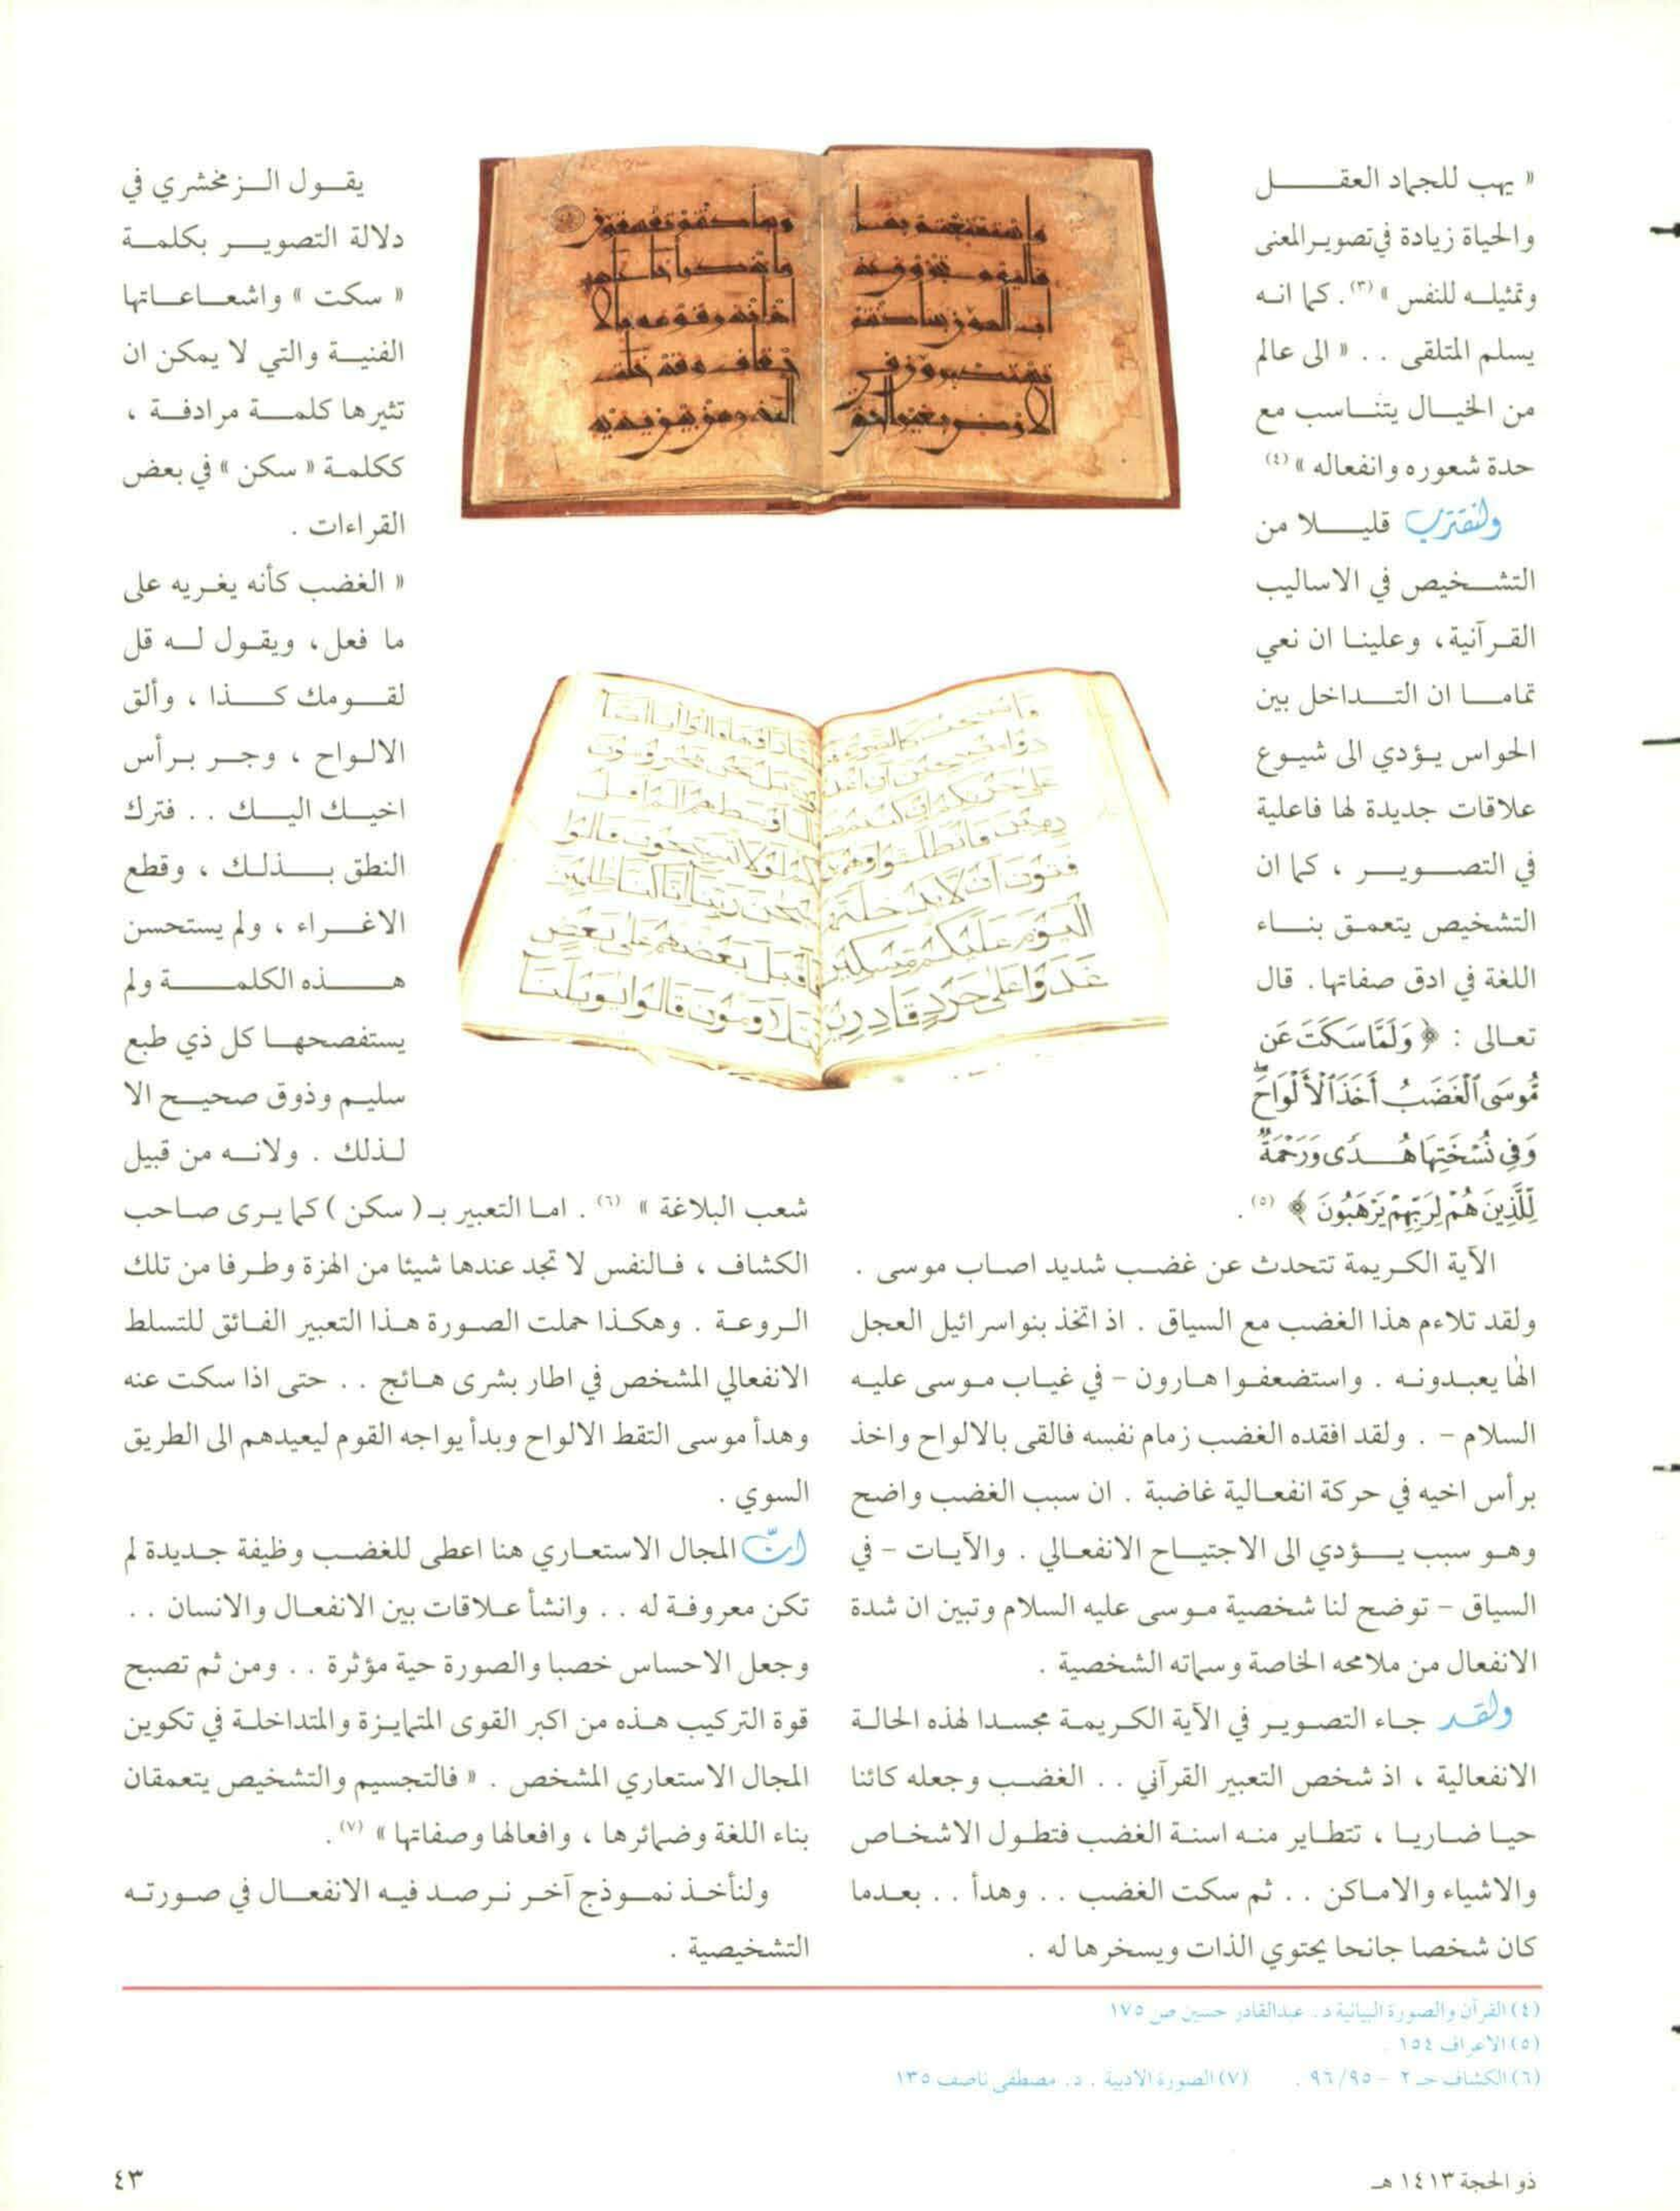 « يهب للجماد العقل
والحياة زيادة في تصوير المعنى
وتمثيله للنفس » (٣). كما انه
يسلم المتلقى . . « الى عالم
من الخيال يتناسب مع
حدة شعوره وانفعاله » (٤)
ولنقترب قليلا من
التشخيص في الاساليب
القرآنية ، وعلينا ان نعي
تماما ان التداخل بين
الحواس يؤدي الى شيوع
علاقات جديدة لها فاعلية
في التصوير ، كما ان
التشخيص يتعمق بناء
اللغة في ادق صفاتها . قال
تعالى : ﴿ وَلَمَّا سَكَتَ عَن
مُّوسَى ٱلْغَضَبُ أَخَذَ ٱلْأَلْوَاحَ ۖ
وَفِي نُسْخَتِهَا هُدًى وَرَحْمَةٌ
لِّلَّذِينَ هُمْ لِرَبِّهِمْ يَرْهَبُونَ ﴾ (٥) .
الآية الكريمة تتحدث عن غضب شديد اصاب موسى .
ولقد تلاءم هذا الغضب مع السياق . اذ اتخذ بنو اسرائيل العجل
الها يعبدونه . واستضعفوا هارون - في غياب موسى عليه
السلام - . ولقد افقده الغضب زمام نفسه فالقى بالالواح واخذ
برأس اخيه في حركة انفعالية غاضبة . ان سبب الغضب واضح
وهو سبب يؤدي الى الاجتياح الانفعالي . والآيات - في
السياق - توضح لنا شخصية موسى عليه السلام وتبين ان شدة
الانفعال من ملامحه الخاصة وسماته الشخصية .
ولقد جاء التصوير في الآية الكريمة مجسدا لهذه الحالة
الانفعالية ، اذ شخص التعبير القرآني . . الغضب وجعله كائنا
حيا ضاريا ، تتطاير منه اسنة الغضب فتطول الاشخاص
والاشياء والاماكن . . ثم سكت الغضب . . وهدأ . . بعدما
كان شخصا جانحا يحتوي الذات ويسخرها له .
يقول الزمخشري في
دلالة التصوير بكلمة
« سكت » واشعاعاتها
الفنية والتي لا يمكن ان
تثيرها كلمة مرادفة ،
ككلمة « سكن » في بعض
القراءات .
« الغضب كأنه يغريه على
ما فعل ، ويقول له قل
لقومك كذا ، وألق
الالواح ، وجر برأس
اخيك اليك . . فترك
النطق بذلك ، وقطع
الاغراء ، ولم يستحسن
هذه الكلمة ولم
يستفصحها كل ذي طبع
سليم وذوق صحيح الا
لذلك . ولانه من قبيل
شعب البلاغة » (٦) . اما التعبير بـ ( سكن ) كما يرى صاحب
الكشاف ، فالنفس لا تجد عندها شيئا من الهزة وطرفا من تلك
الروعة . وهكذا حملت الصورة هذا التعبير الفائق للتسلط
الانفعالي المشخص في اطار بشرى هائج . . حتى اذا سكت عنه
وهدأ موسى التقط الالواح وبدأ يواجه القوم ليعيدهم الى الطريق
السوي .
انّ المجال الاستعاري هنا اعطى للغضب وظيفة جديدة لم
تكن معروفة له . . وانشأ علاقات بين الانفعال والانسان . .
وجعل الاحساس خصبا والصورة حية مؤثرة . . ومن ثم تصبح
قوة التركيب هذه من اكبر القوى المتمايزة والمتداخلة في تكوين
المجال الاستعاري المشخص . « فالتجسيم والتشخيص يتعمقان
بناء اللغة وضمائرها ، وافعالها وصفاتها » (٧) .
ولنأخذ نموذج آخر نرصد فيه الانفعال في صورته
التشخيصية .
(٤) القرآن والصورة البيانية د . عبدالقادر حسين ص ١٧٥
(٥) الاعراف ١٥٤ .
(٦) الكشاف حـ ٢ - ٩٦/٩٥ . (٧) الصورة الادبية . د. مصطفى ناصف ١٣٥
ذو الحجة ١٤١٣ هـ
٤٣